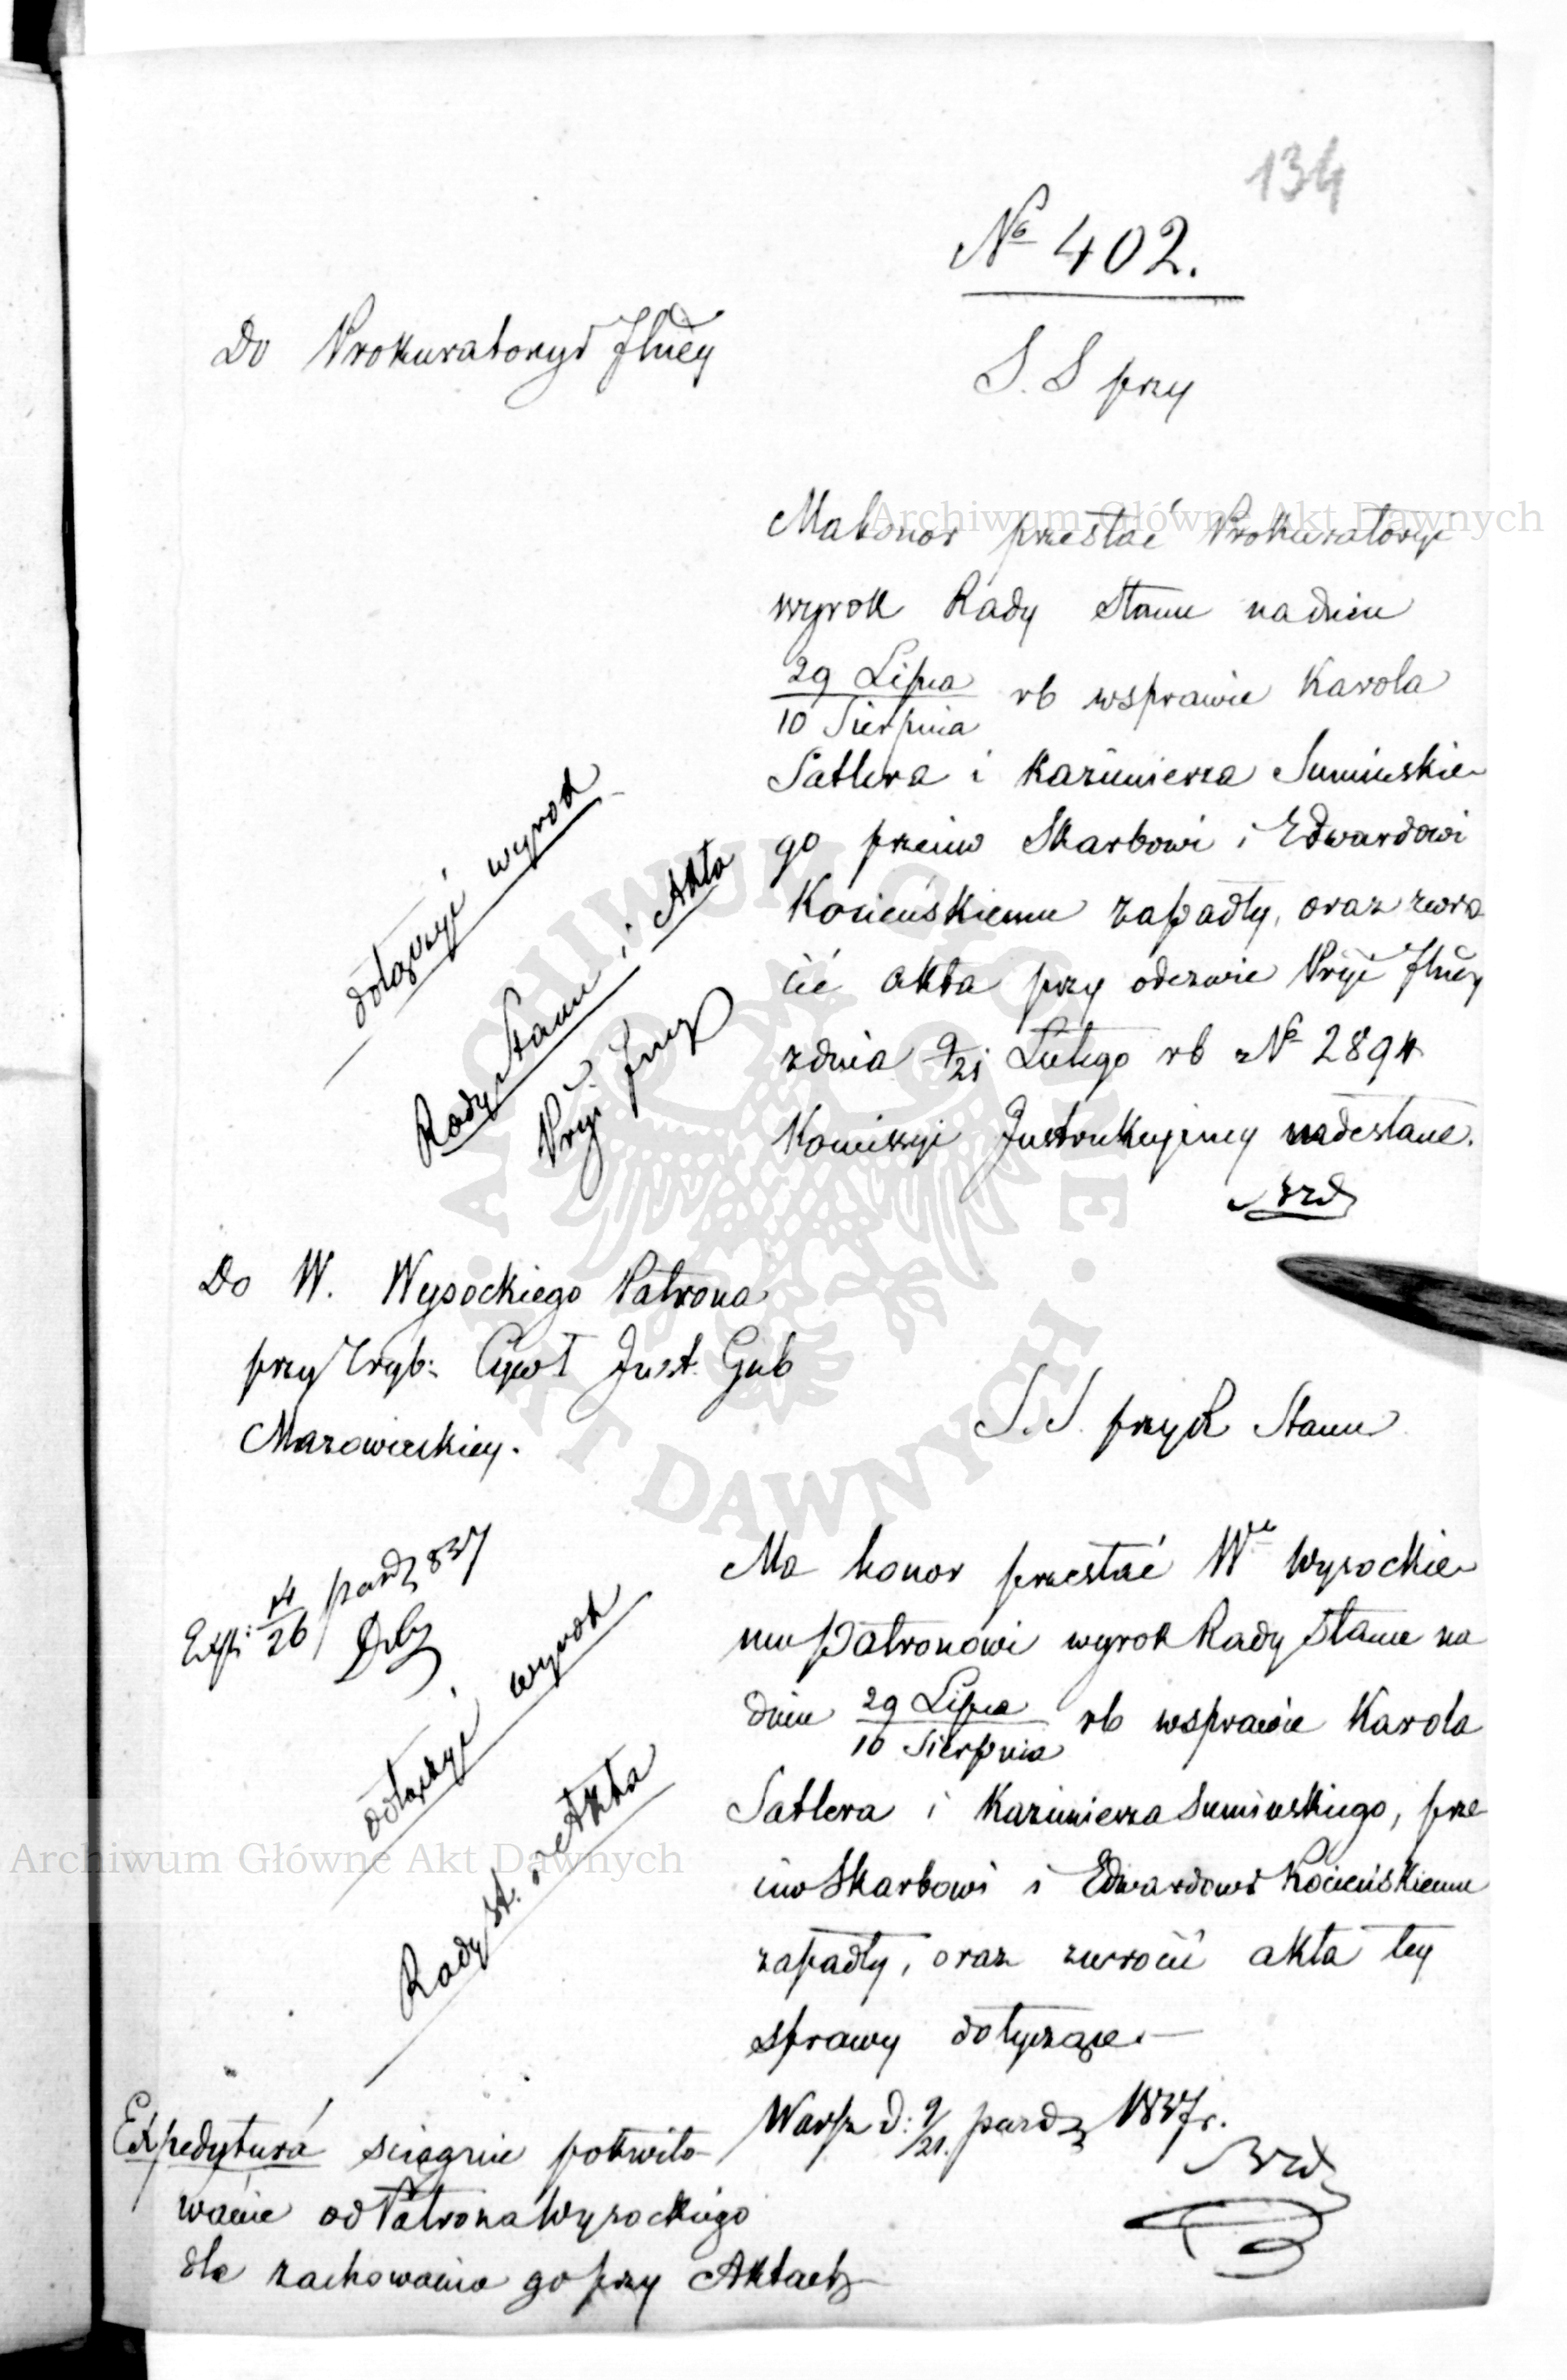 134
Nº 402.
Do Prokuratoryi Jlnéy
S. S przy
Ma honor przesłać Prokuratoryi
wyrok Rady Stanu na dniu
29 Lipca
10 Sierpnia
rb w sprawie Karola
Satlera i Kazimierza Sumińskie
go przeciw Skarbowi i Edwardowi
Kocieńskiemu zapadły, oraz zwró
cić akta przy odezwie Pryi Jlnéy
z dnia 9/21 Lutego rb Nº 2894
Komissyi Instrukcyjney nadesłane.
dołączyć wyrok
Rady Stanu i Akta
Pryi
Do W. Wysockiego Patrona
przy Tryb: Cywl Inst. Gub
Mazowieckiey.
S. S. przy R Stanu
Exp: 14/26 paźdz 837
Ma honor przesłać Wu Wysockie
mu Patronowi wyrok Rady Stanu na
dniu 29 Lipca
10 Sierpnia
rb w sprawie Karola
Satlera i Kazimierza Sumińskiego, prze
ciw Skarbowi i Edwardowi Kocieńskiemu
zapadły, oraz zwrócić akta tey
sprawy dotyczące.—
dołączyć wyrok
Rady St. Akta
Warsz d: 9/21. paźdz 1837 r.
Expedytura ściągnie pokwito
wanie od Patrona Wysockiego
dla zachowania go przy Aktach
Archiwum Główne Akt Dawnych
Archiwum Główne Akt Dawnych
ARCHIWUM GŁÓWNE AKT DAWNYCH